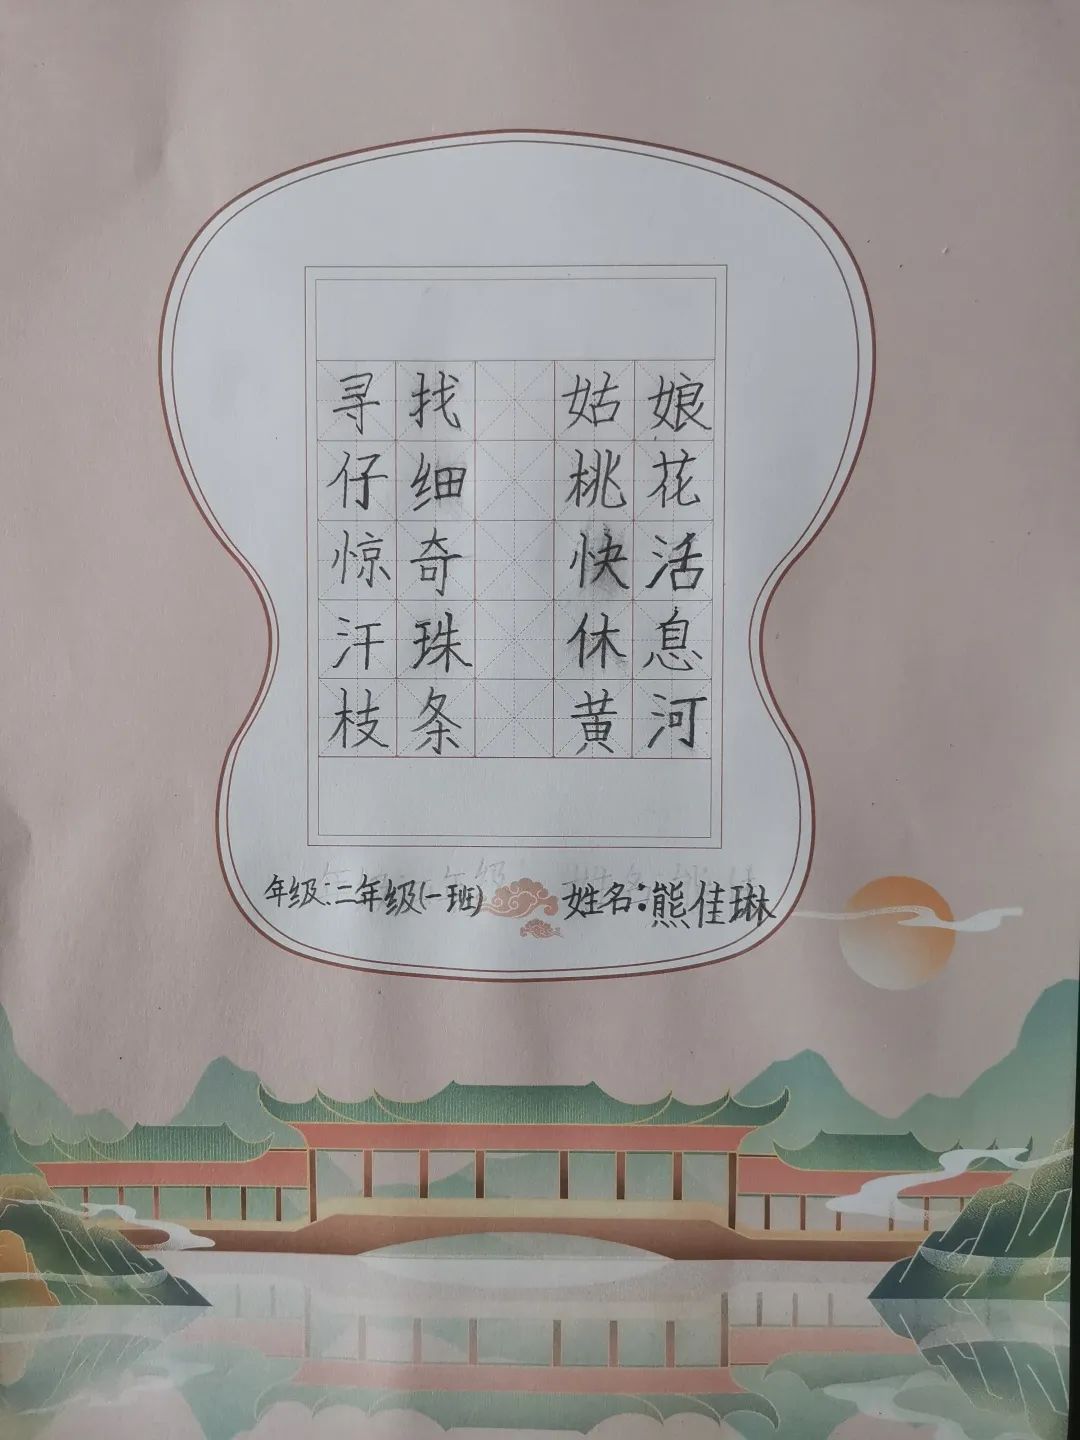 寻找 姑娘
仔细 桃花
惊奇 快活
汗珠 休息
枝条 黄河
年级:二年级(一班) 姓名:熊佳琳